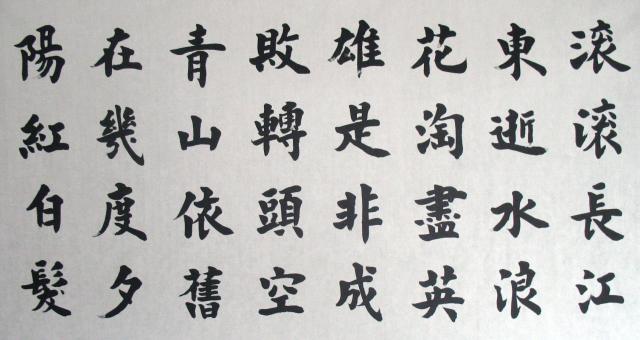 滚滚長江
東逝水浪
花淘盡英
雄是非成
敗轉頭空
青山依舊
在幾度夕
陽紅白髮